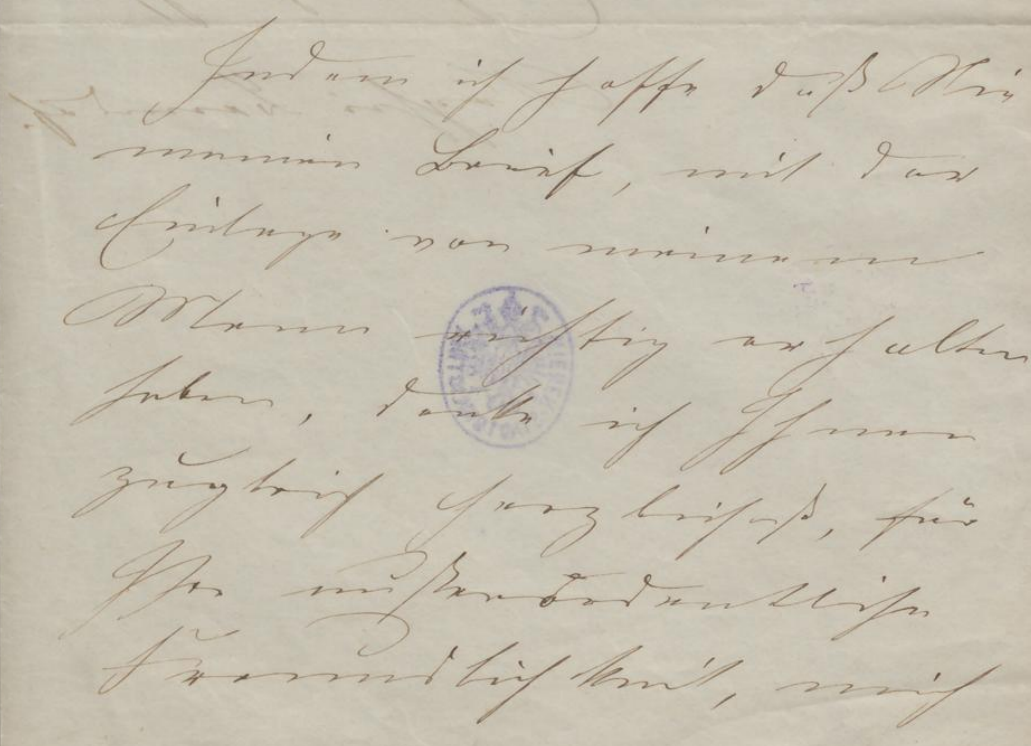 Indem ich hoffe daß Sie
meinen Brief, mit der
Einlage von meinem
Mann richtig erhalten
haben, danke ich Ihnen
zugleich herzlichst, für
Ihre außerordentliche
Freundlichkeit, mich